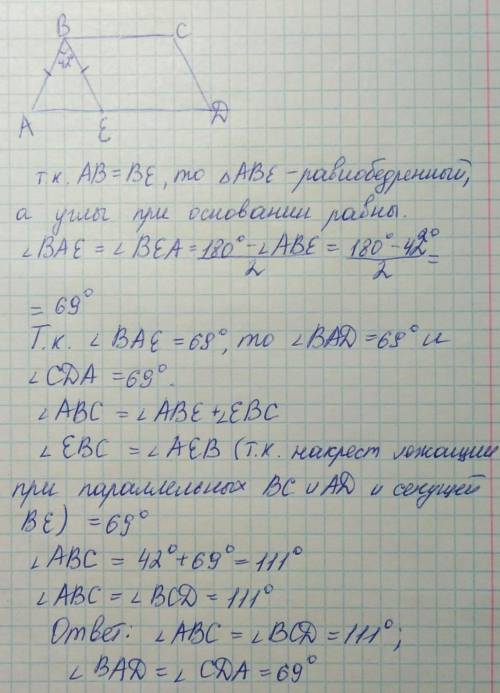 B
C
42°
A
E
D
т.к. AB = BE, то △ABE - равнобедренный,
а углы при основании равны.
∠BAE = ∠BEA = (180° - ∠ABE)/2 = (180° - 42°)/2 =
= 69°
Т.к. ∠BAE = 69°, то ∠BAD = 69° и
∠CDA = 69°.
∠ABC = ∠ABE + ∠EBC
∠EBC = ∠AEB (т.к. накрест лежащии
при параллельных BC и AD и секущей
BE) = 69°
∠ABC = 42° + 69° = 111°
∠ABC = ∠BCD = 111°
Ответ: ∠ABC = ∠BCD = 111°;
∠BAD = ∠CDA = 69°